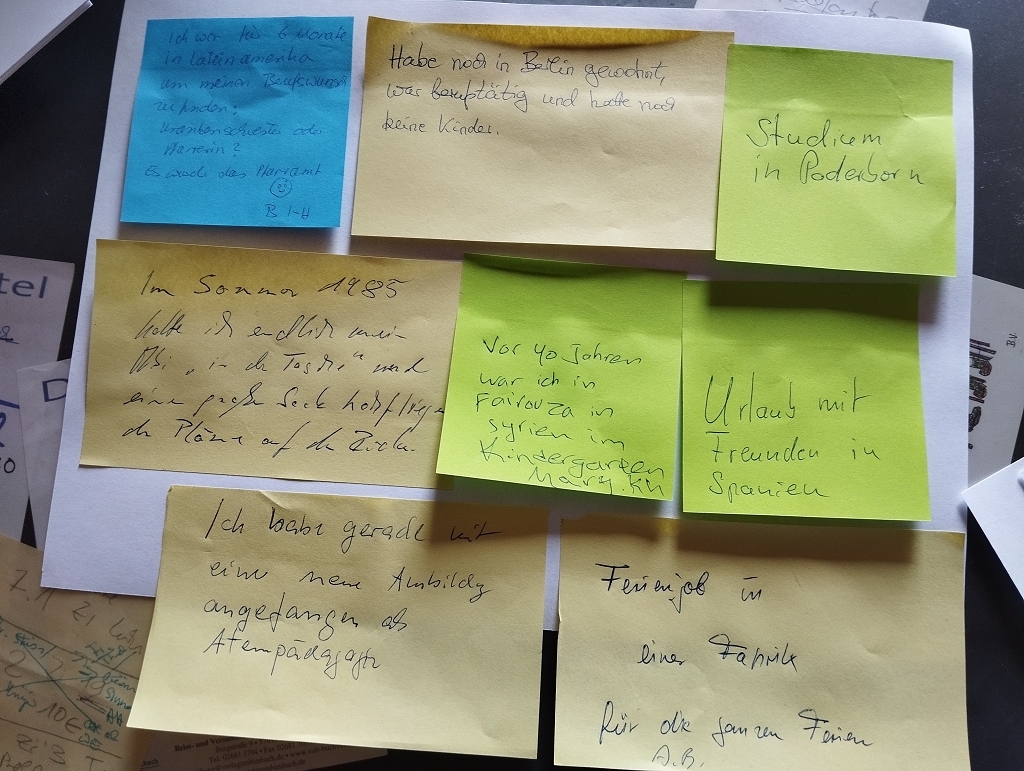 Ich war für 6 Monate
in Lateinamerika
um meinen Berufswunsch
zu finden:
Krankenschwester oder
Pfarrerin?
Es wurde das Pfarramt
B I-H
Habe noch in Berlin gewohnt,
war beruftätig und hatte noch
keine Kinder.
Studium
in Paderborn
Im Sommer 1985
hatte ich endlich mein
Abi „in der Tasche" und
eine große Sack
der Pläne auf der
Vor 40 Jahren
war ich in
Fairouza in
syrien im
Kindergarten
Mary. KH
Urlaub mit
Freunden in
Spanien
Ich habe gerade mit
einer neue Ausbildg
angefangen als
Atempädagogin
Ferienjob in
einer Faprik
für die ganzen Ferien
A.B.
tel
D
B.V.
10€
Auch